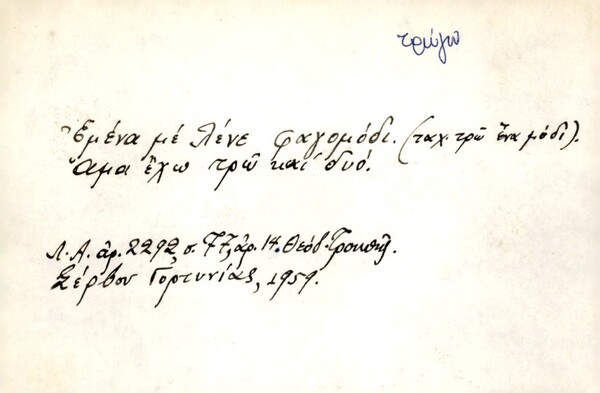 τρώγω
Ἐμένα μέ λένε φαγομόδι. (ταχ. τρῶ ἕνα μόδι).
Ἅμα ἔχω τρῶ καί δυό.
Λ.Α. ἀρ. 2292, σ. 77, ἀρ. 14. Θεόδ. Τρουπῆς.
Σέρβου Γορτυνίας, 1959.